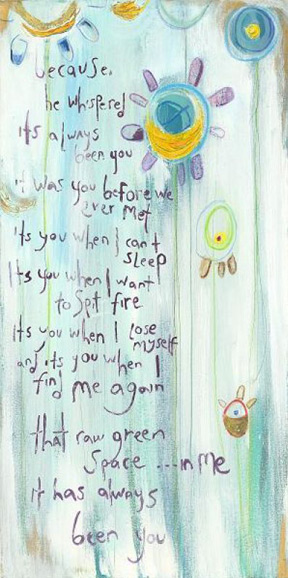 because.
he whispered
its always
been you
it was you before we
ever met
its you when i can't
sleep
Its you when I want
to spit fire
Its you when I lose
myself
and its you when I
find me again
that raw green
space ... in me
it has always
been you